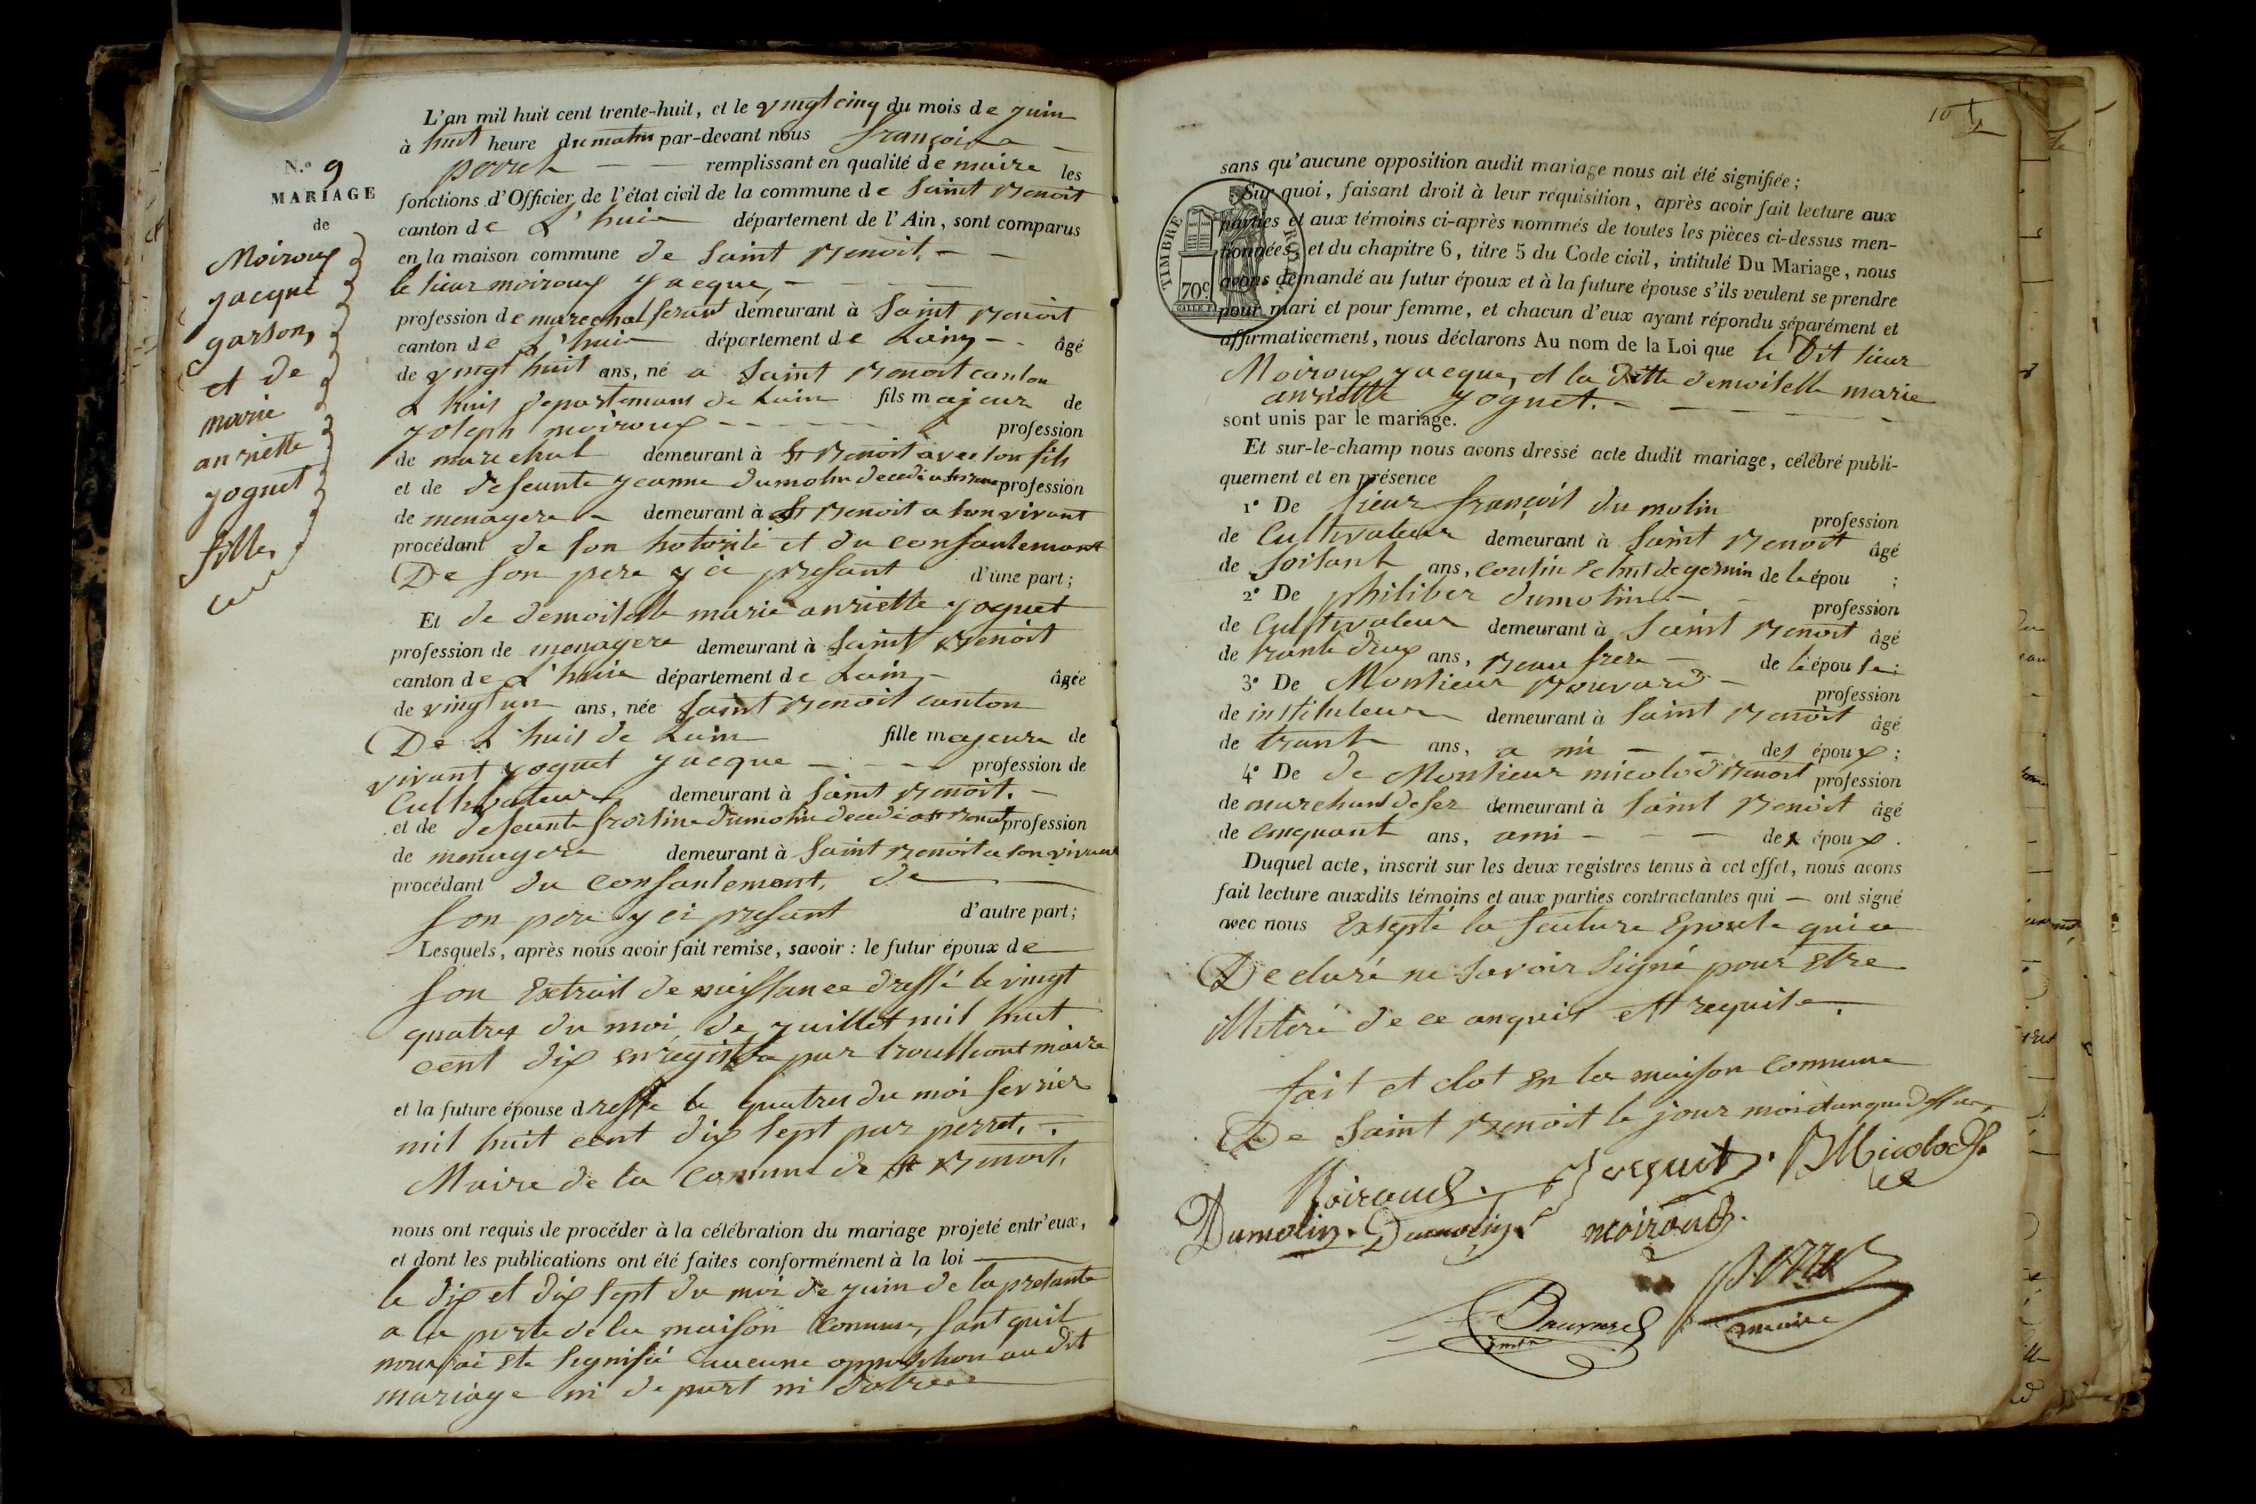 N.º 9
MARIAGE
de
Moiroux
Jacque
garson,
et de
marie
anriette
joguet
fille,
L'an mil huit cent trente-huit, et le vingt cinq du mois de juin
à huit heure du matin par-devant nous François
perret remplissant en qualité de maire les
fonctions d'Officier de l'état civil de la commune de Saint Benoit
canton de L'huis département de l'Ain, sont comparus
en la maison commune de Saint Benoit.
le sieur moiroux Jacque,
profession de marechal ferant demeurant à Saint Benoit
canton de L'huis département de Lain, âgé
de vingt huit ans, né a Saint Benoit canton
L'huis departemant de Lain fils majeur de
joseph moiroux profession
de marechal demeurant à St Benoit avec son fils
et de defeunte jeanne dumolin decedé a St Benoit profession
de menagere demeurant à St Benoit a son vivant
procédant de son hotorité et du consantemant
De son pere y ci presant d'une part;
Et de demoiselle marie anriette joguet
profession de menagere demeurant à Saint Benoit
canton de L'huis département de Lain, âgée
de vingt un ans, née Saint Benoit canton
De L'huis de Lain fille majeure de
vivant joguet jacque profession de
Cultivateur demeurant à Saint Benoit.
et de defeunte frosine dumolin decedé a St Benoit profession
de menagere demeurant à Saint Benoit a son vivant
procédant du consantemant, de
son pere y ci presant d'autre part;
Lesquels, après nous avoir fait remise, savoir: le futur époux de
son Extrait de naissance dressé le vingt
quatres du moi, de juillet mil huit
cent dix enregistre par maire
et la future épouse dresse le quatres du moi fevrier
mil huit cent dix sept par perret.
Maire de la Commune de St Benoit,
nous ont requis de procéder à la célébration du mariage projeté entr'eux,
et dont les publications ont été faites conformément à la loi
le dix et dix sept du moi de juin de la presante
a la porte de la maison commune, sant quil
nous ai ete signifié aucune opposition au dit
mariage ni de part ni dotre
10
sans qu'aucune opposition audit mariage nous ait été signifiée;
Sur quoi, faisant droit à leur réquisition, après avoir fait lecture aux
parties et aux témoins ci-après nommés de toutes les pièces ci-dessus men-
tionnées, et du chapitre 6, titre 5 du Code civil, intitulé Du Mariage, nous
avons demandé au futur époux et à la future épouse s'ils veulent se prendre
pour mari et pour femme, et chacun d'eux ayant répondu séparément et
affirmativement, nous déclarons Au nom de la Loi que le Dit sieur
Moiroux jacque, et la Ditte demoiselle marie
anriette joguet.
sont unis par le mariage.
TIMBRE ROYAL
70c
Et sur-le-champ nous avons dressé acte dudit mariage, célébré publi-
quement et en présence
1º De sieur François du molin profession
de Cultivateur demeurant à Saint Benoit âgé
de soisant ans, cousin germin de l'épou ;
2º De philiber dumolin profession
de Cultivateur demeurant à Saint Benoit âgé
de trante deux ans, Beau frere de l'épouse;
3º De Monsieur Bouvard profession
de instituteur demeurant à Saint Benoit âgé
de trant ans, a mi des époux;
4º De de Monsieur micolod Benoit profession
de marchand de fer demeurant à Saint Benoit âgé
de cinquant ans, ami des époux.
Duquel acte, inscrit sur les deux registres tenus à cet effet, nous avons
fait lecture auxdits témoins et aux parties contractantes qui ont signé
avec nous Exsepté la feuture Epouse qui a
Declaré ne savoir signé pour Etre
illiteré de ce anquis Et requise.
fait et clot en la maison commune
De Saint Benoit le jour moi et an que dessus,
Moiroud. Joguet. B Micolod
Dumolin. Dumolin. moiroud.
Bouvard Perret
maire